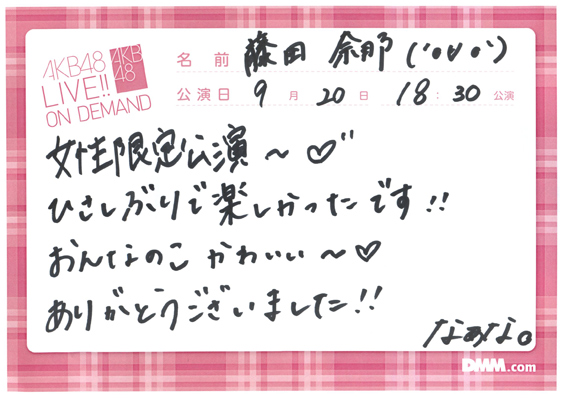 AKB48
LIVE!!
ON DEMAND
AKB
48
名前 藤田 奈那 (´•∀•`)
公演日 9月20日 18:30公演
女性限定公演～♡"
ひさしぶりで楽しかったです!!
おんなのこ かわいい～♡
ありがとうございました!!
なぁな。
DMM.com